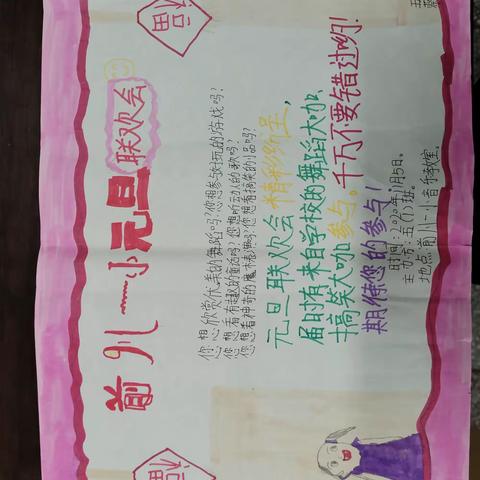 福
前川一小元旦联欢会
你想欣赏优美的舞蹈吗?你想参与好玩的游戏吗?
你想看有趣的童话吗?您想听动人的歌吗?
您想看神奇的魔术表演吗?您想看搞笑的小品吗?
元旦联欢会精彩纷呈,
届时有来自学校的舞蹈大咖、
搞笑大咖参与。千万不要错过哟!
期待您的参与!
时间:2020年1月5日。
主办方:五(1)班。
地点:前川一小音乐教室。
福